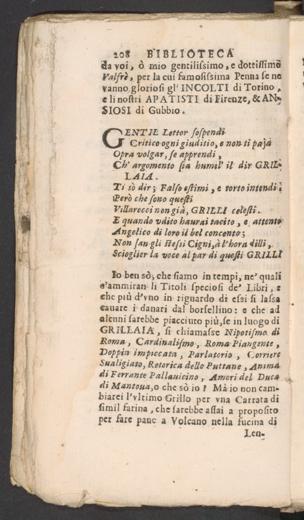 208 BIBLIOTECA
da voi, ò mio gentilissimo, e dottissimo
Valsrè, per la cui famosissima Penna se ne
vanno gloriosi gl' INCOLTI di Torino,
e li nostri APATISTI di Firenze, & AN-
SIOSI di Gubbio.
GENTIL Lettor sospendi
Critico ogni giuditio, e non ti paja
Opra volgar, se apprendi,
Ch' argomento sia humil' il dir GRIL-
LAIA.
Ti sò dir; Falso estimi, e torto intendi;
Però che sono questi
Villarecci non già, GRILLI celesti.
E quando vdito haurai tacito, e attento
Angelico di loro il bel concento;
Non san gli stessi Cigni, à l'hora dilli,
Scioglier la voce al par di questi GRILLI
Io ben sò, che siamo in tempi, ne' quali
s'ammiran li Titoli speciosi de' Libri, e
che più d'vno in riguardo di essi si lassa
cauare i danari dal borsellino: e che ad
alcuni sarebbe piacciuto più, se in luogo di
GRILLAIA, si chiamasse Nipotismo di
Roma, Cardinalismo, Roma Piangente,
Doppia impiccata, Parlatorio, Corriere
Sualigiato, Retorica delle Puttane, Anima
di Ferrante Pallauicino, Amori del Duca
di Mantoua, o che sò io? Mà io non cam-
biarei l'vltimo Grillo per vna Carrata di
simil farina, che sarebbe assai a proposito
per fare pane a Volcano nella fucina di
Len-